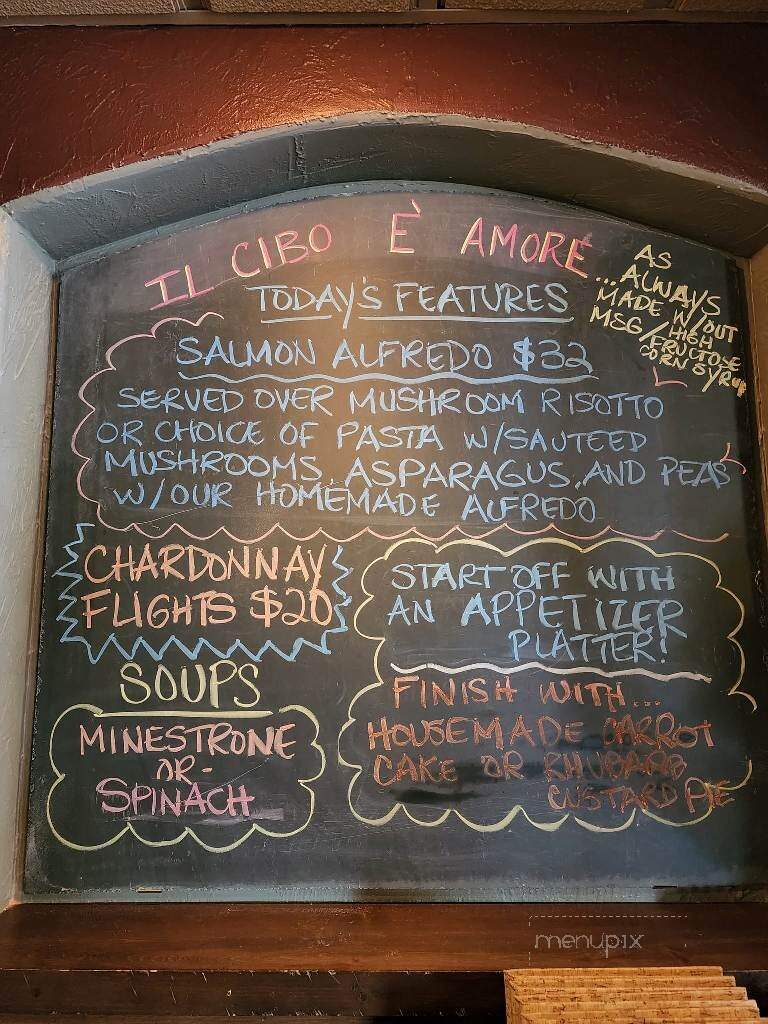 IL CIBO È AMORE
AS
...ALWAYS
MADE W/OUT
MSG/HIGH
FRUCTOSE
CORN SYRUP
TODAY'S FEATURES
SALMON ALFREDO $32
SERVED OVER MUSHROOM RISOTTO
OR CHOICE OF PASTA W/SAUTEED
MUSHROOMS, ASPARAGUS, AND PEAS
W/OUR HOMEMADE ALFREDO
CHARDONNAY
FLIGHTS $20
START OFF WITH
AN APPETIZER
PLATTER!
SOUPS
MINESTRONE
-OR-
SPINACH
FINISH WITH...
HOUSEMADE CARROT
CAKE OR RHUBARB
CUSTARD PIE
menupix